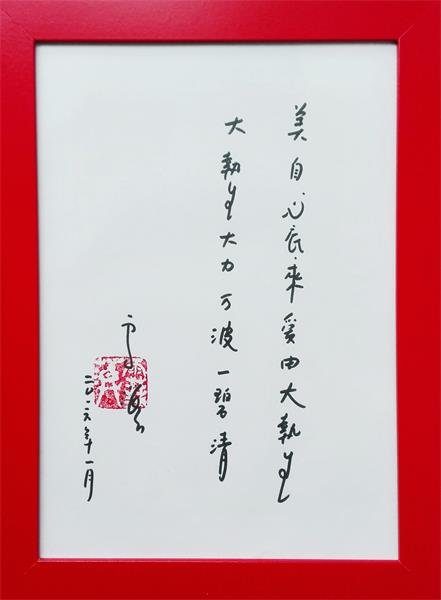 美自心底來爱由大執生
大執生大力万波一碧清
二〇一六年一月